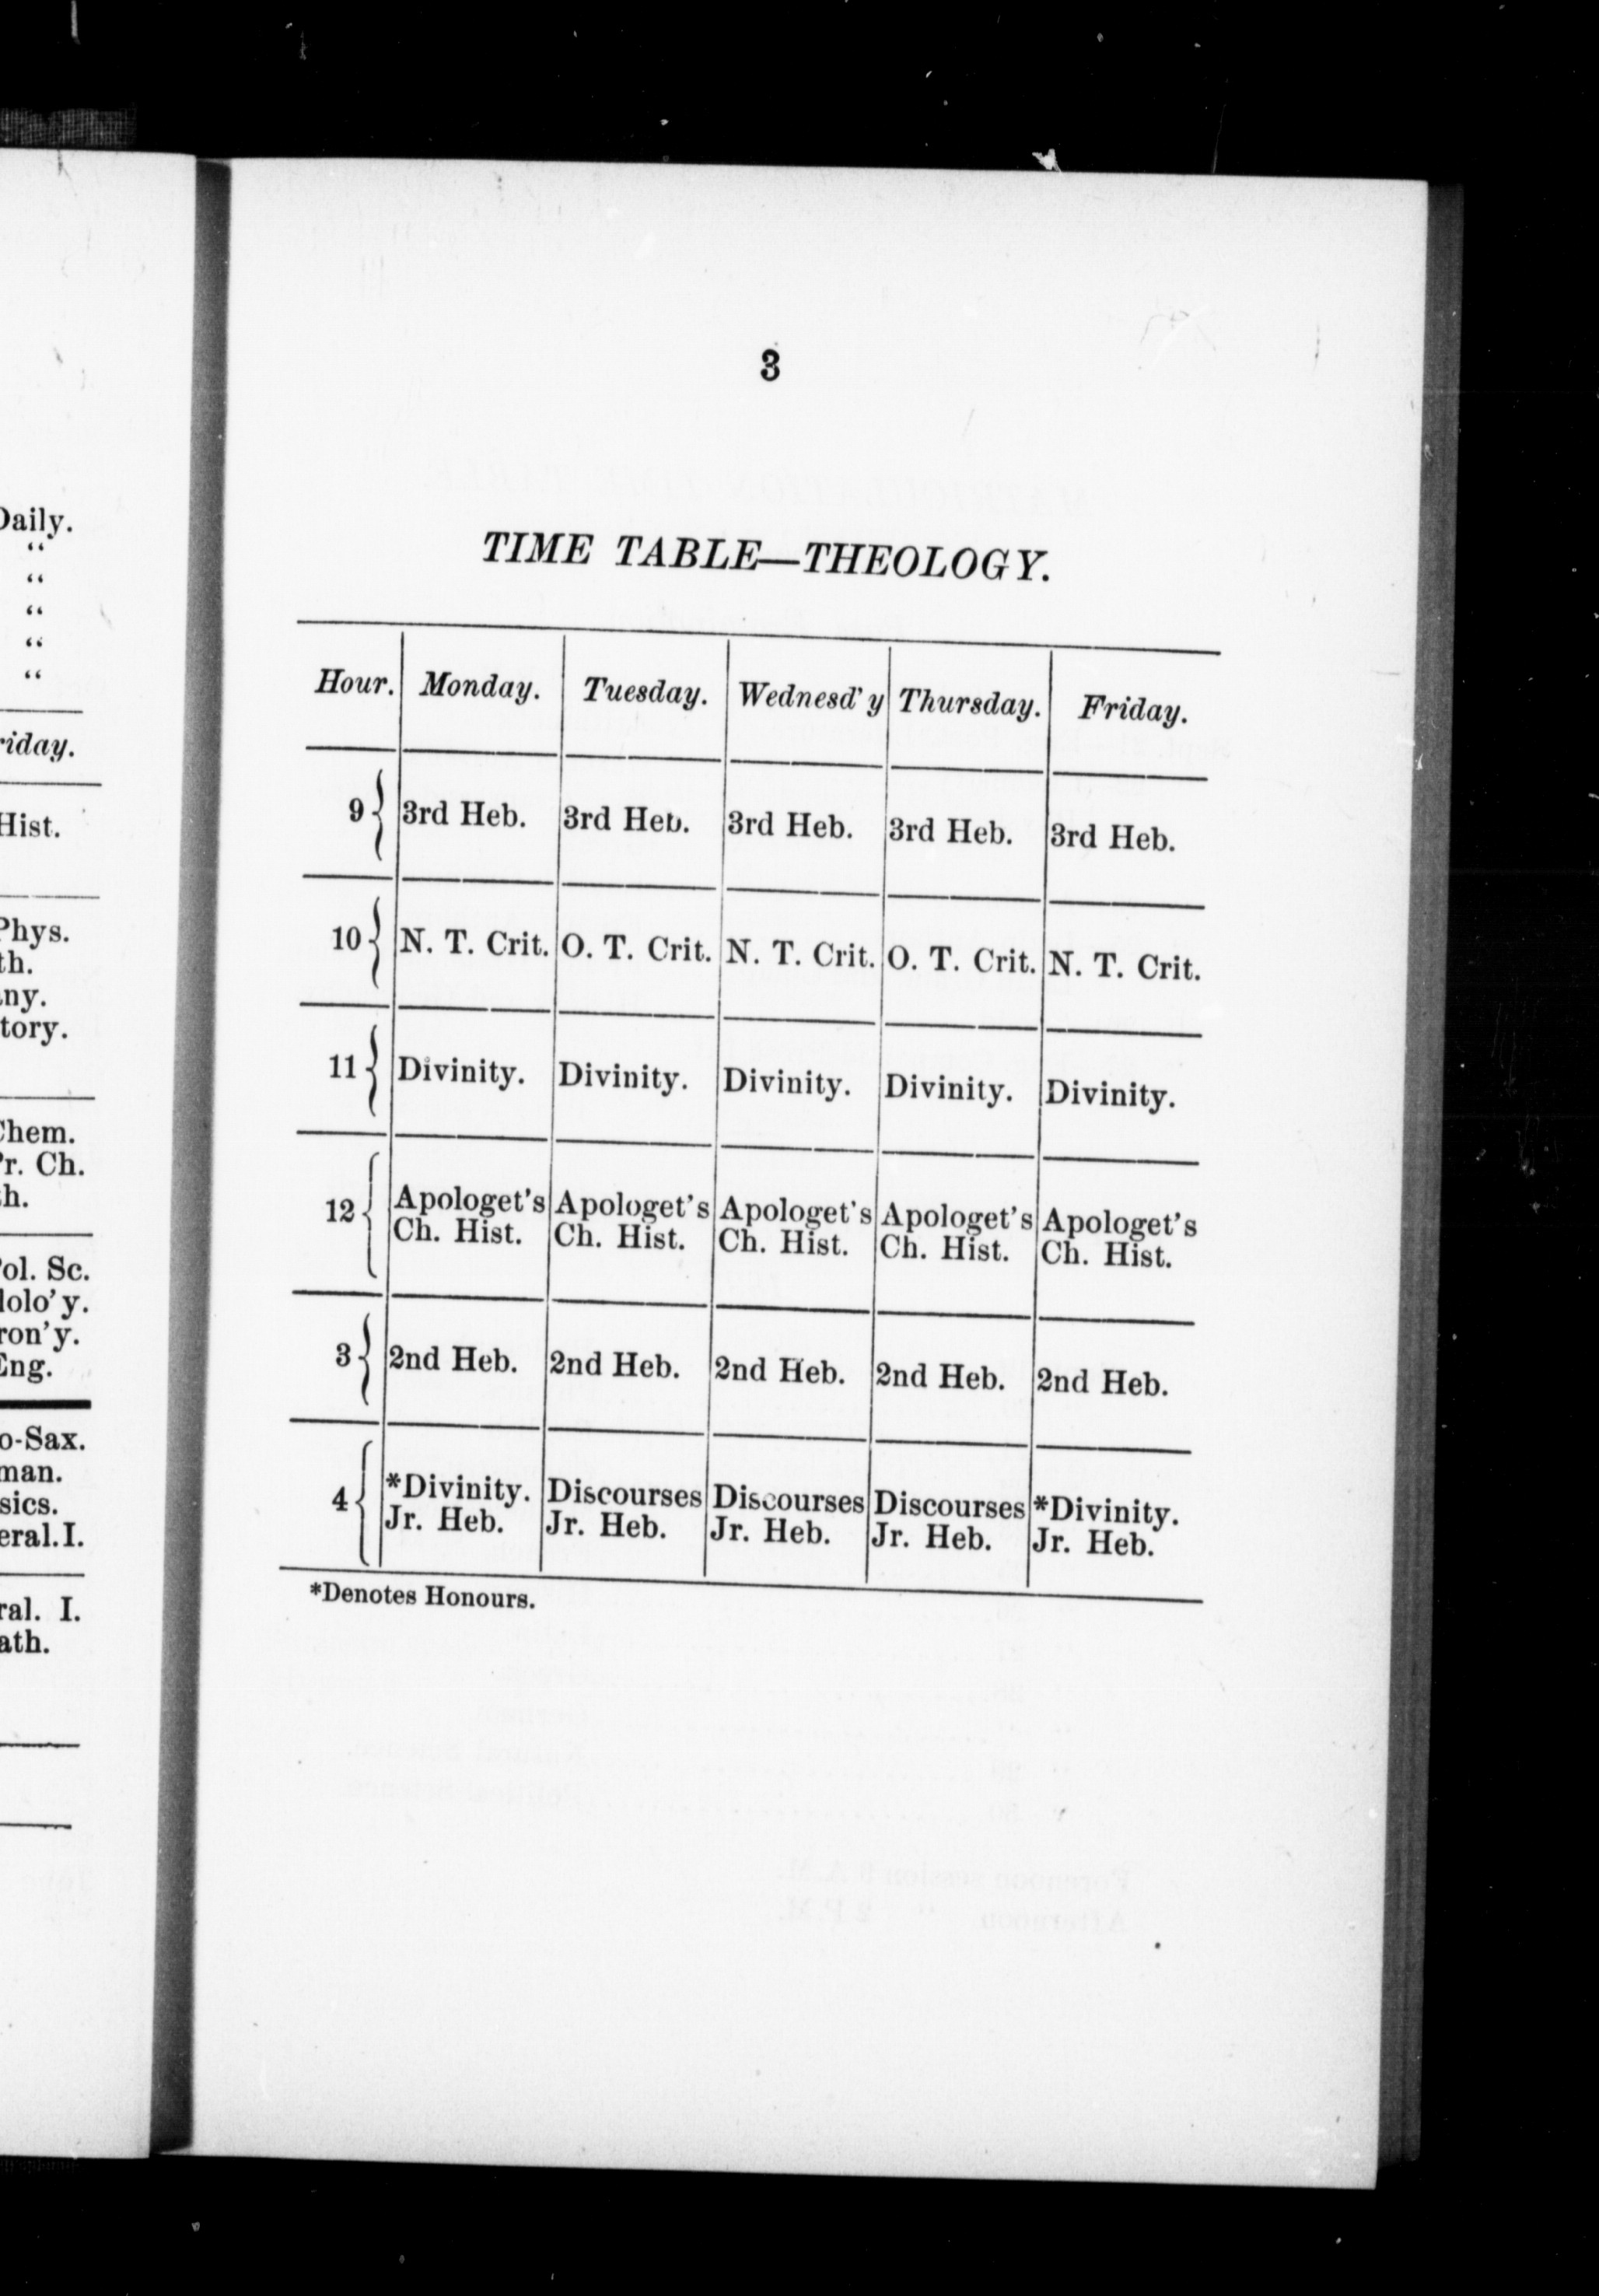 3
TIME TABLE—THEOLOGY.
Hour. Monday. Tuesday. Wednesd'y Thursday. Friday.
9 3rd Heb. 3rd Heb. 3rd Heb. 3rd Heb. 3rd Heb.
10 N. T. Crit. O. T. Crit. N. T. Crit. O. T. Crit. N. T. Crit.
11 Divinity. Divinity. Divinity. Divinity. Divinity.
12 Apologet's Apologet's Apologet's Apologet's Apologet's
Ch. Hist. Ch. Hist. Ch. Hist. Ch. Hist. Ch. Hist.
3 2nd Heb. 2nd Heb. 2nd Heb. 2nd Heb. 2nd Heb.
4 *Divinity. Discourses Discourses Discourses *Divinity.
Jr. Heb. Jr. Heb. Jr. Heb. Jr. Heb. Jr. Heb.
*Denotes Honours.
Daily.
“
“
“
“
“
riday.
Hist.
Phys.
th.
ny.
tory.
Chem.
r. Ch.
h.
ol. Sc.
lolo'y.
ron'y.
Eng.
o-Sax.
man.
sics.
eral. I.
ral. I.
ath.